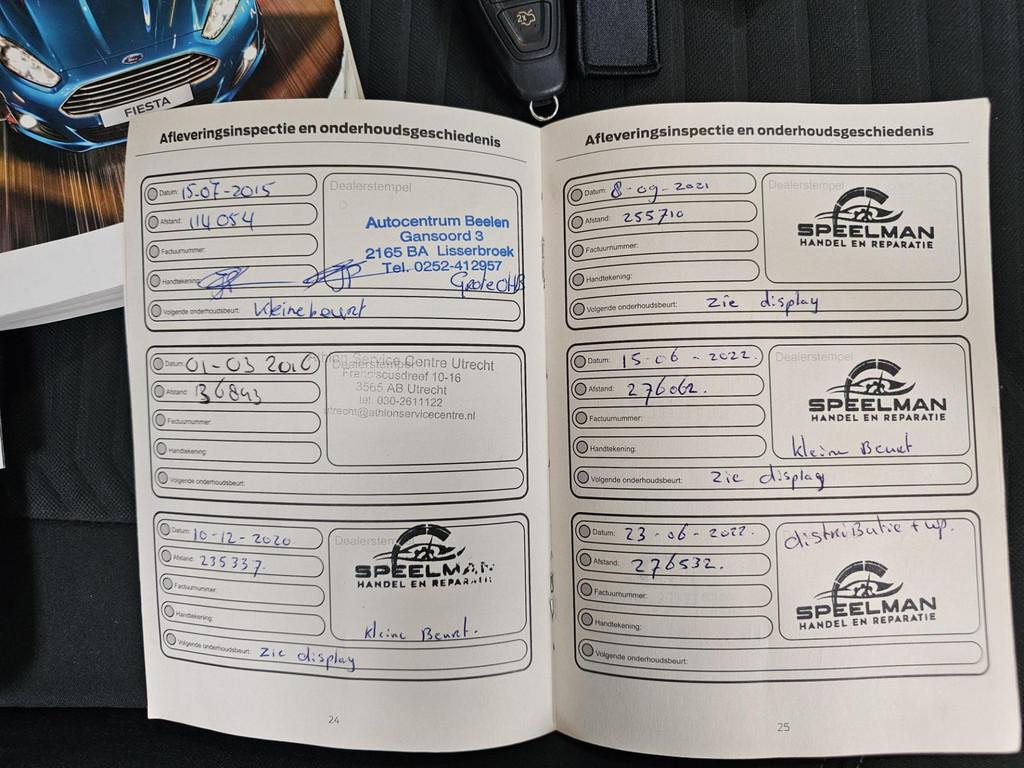 FIESTA
2x
Afleveringsinspectie en onderhoudsgeschiedenis
Datum: 15-07-2015
Afstand: 114054
Factuurnummer:
Handtekening:
Volgende onderhoudsbeurt: Kleine beurt
Dealerstempel
Autocentrum Beelen
Gansoord 3
2165 BA Lisserbroek
Tel. 0252-412957
Grote OHB
Datum: 01-03 2016
Afstand: 136843
Factuurnummer:
Handtekening:
Volgende onderhoudsbeurt:
Dealerstempel
Athlon Service Centre Utrecht
Franciscusdreef 10-16
3565 AB Utrecht
tel. 030-2611122
utrecht@athlonservicecentre.nl
Datum: 10-12-2020
Afstand: 235337.
Factuurnummer:
Handtekening:
Volgende onderhoudsbeurt: Zie display
Dealerstempel
SPEELMAN
HANDEL EN REPARATIE
Kleine Beurt.
24
Afleveringsinspectie en onderhoudsgeschiedenis
Datum: 8-09-2021
Afstand: 255710
Factuurnummer:
Handtekening:
Volgende onderhoudsbeurt: Zie display
Dealerstempel
SPEELMAN
HANDEL EN REPARATIE
Datum: 15-06-2022.
Afstand: 276062.
Factuurnummer:
Handtekening:
Volgende onderhoudsbeurt: Zie display
Dealerstempel
SPEELMAN
HANDEL EN REPARATIE
Kleine Beurt
Datum: 23-06-2022.
Afstand: 276532.
Factuurnummer:
Handtekening:
Volgende onderhoudsbeurt:
distributie + wp.
SPEELMAN
HANDEL EN REPARATIE
25